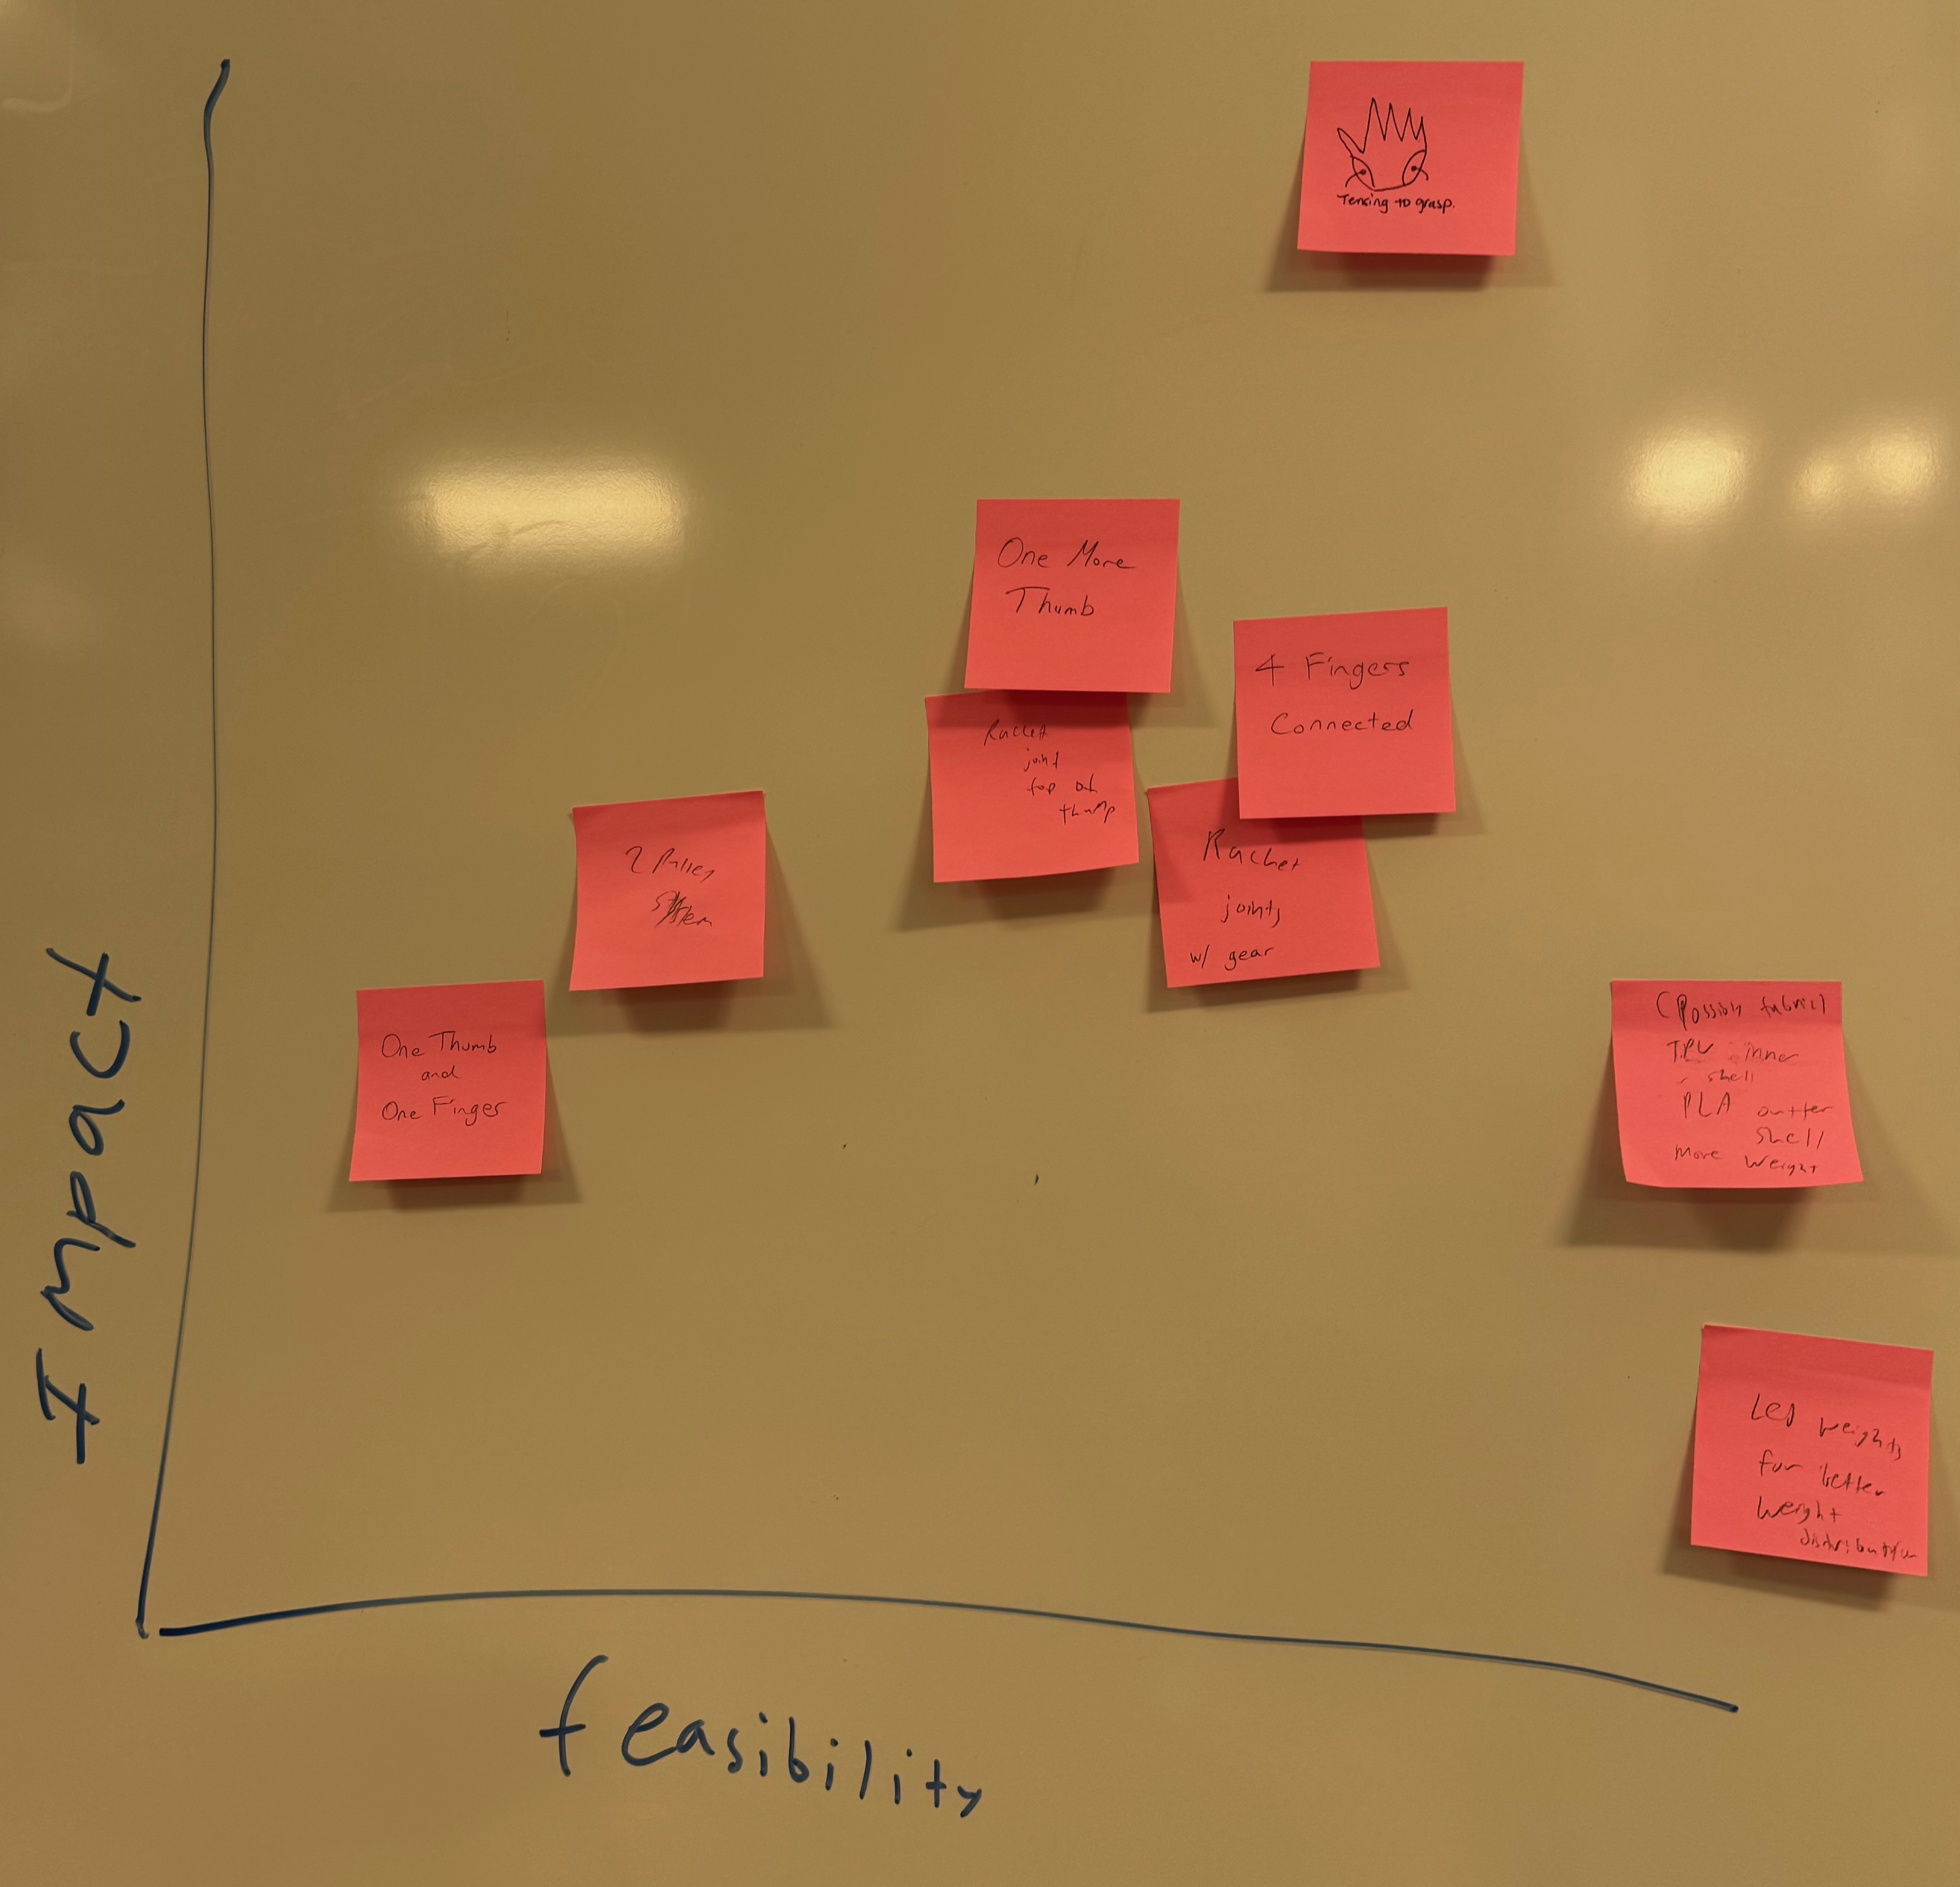 Tensing to grasp.
One More
Thumb
4 Fingers
Connected
joint
top of
thump
Racher
joints
w/ gear
2 Pulley
system
One Thumb
and
One Finger
(Possibly fabric)
TPU inner
shell
PLA outter
shell
More Weight
Led weights
for better
weight
distribution
Impact
feasibility